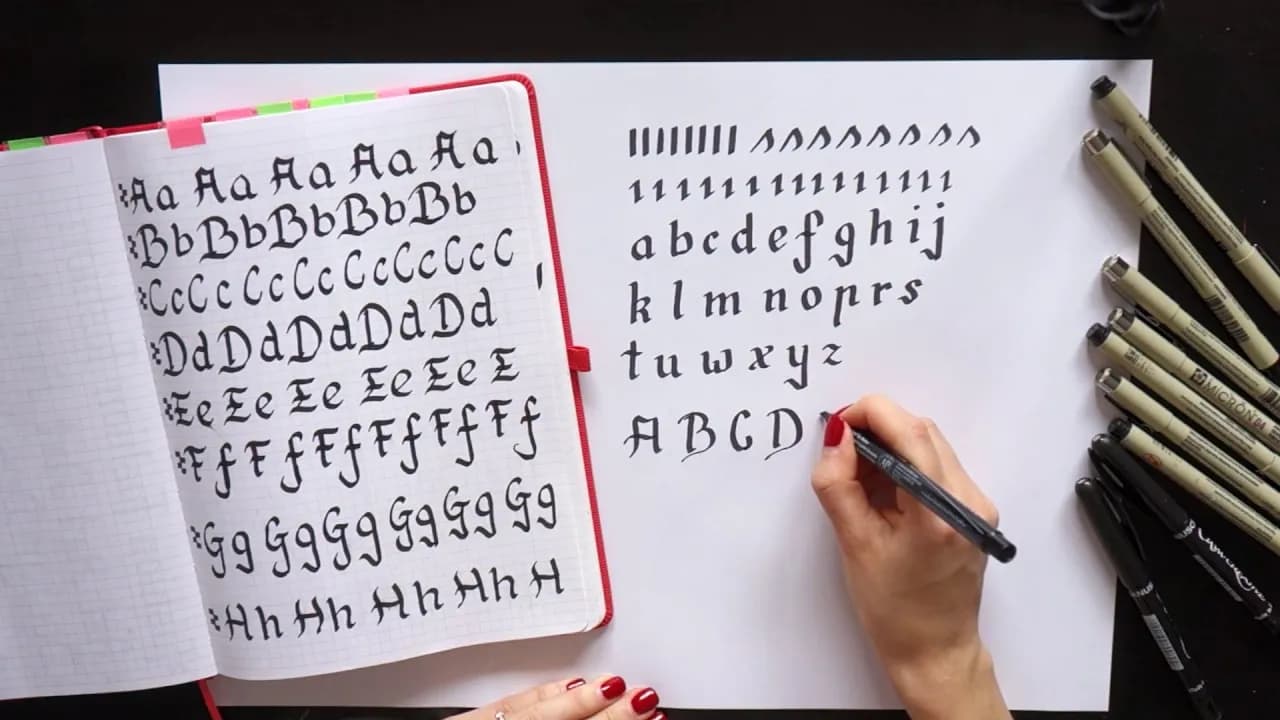 Aa Aa Aa Aa Aa
BbBbBbBbBb
CcCcCcCcCcCcCcC
DdDdDdDdDd
Ee Ee Ee Ee Ee E
Ff Ff Ff Ff Ff Ff
Gg Gg Gg Gg Gg Gg
Hh Hh Hh Hh H
a b c d e f g h i j
k l m n o p r s
t u w x y z
A B C D
MICRON